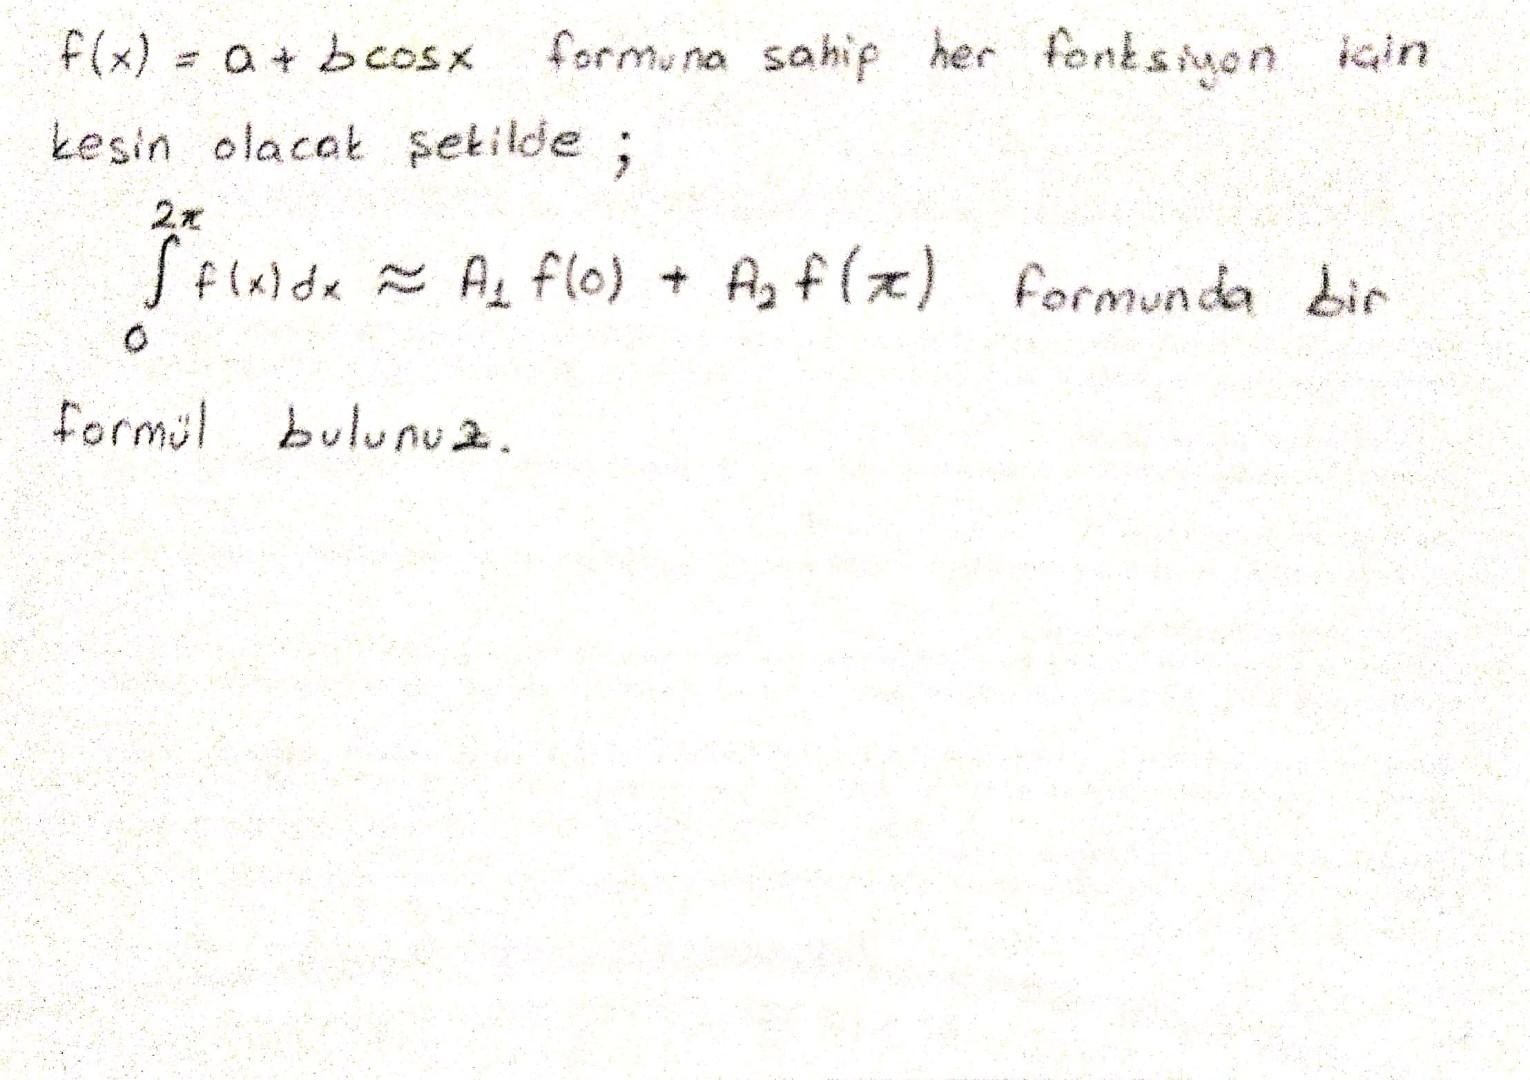 f(x) = a + bcosx formuna sahip her fonksiyon için
kesin olacak şekilde ;
∫₀^{2π} f(x)dx ≈ A₁ f(0) + A₂ f(π) formunda bir
formül bulunuz.